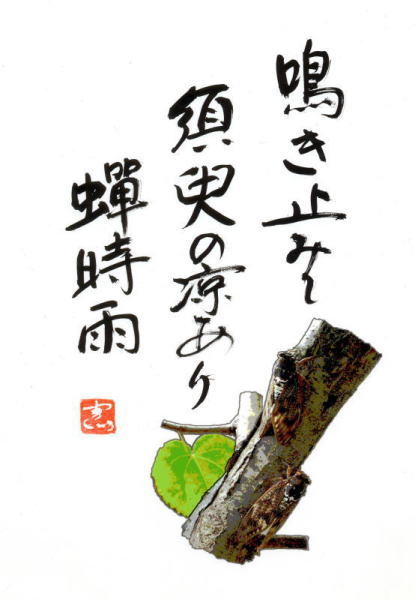 鳴き止みて
須臾の涼あり
蟬時雨